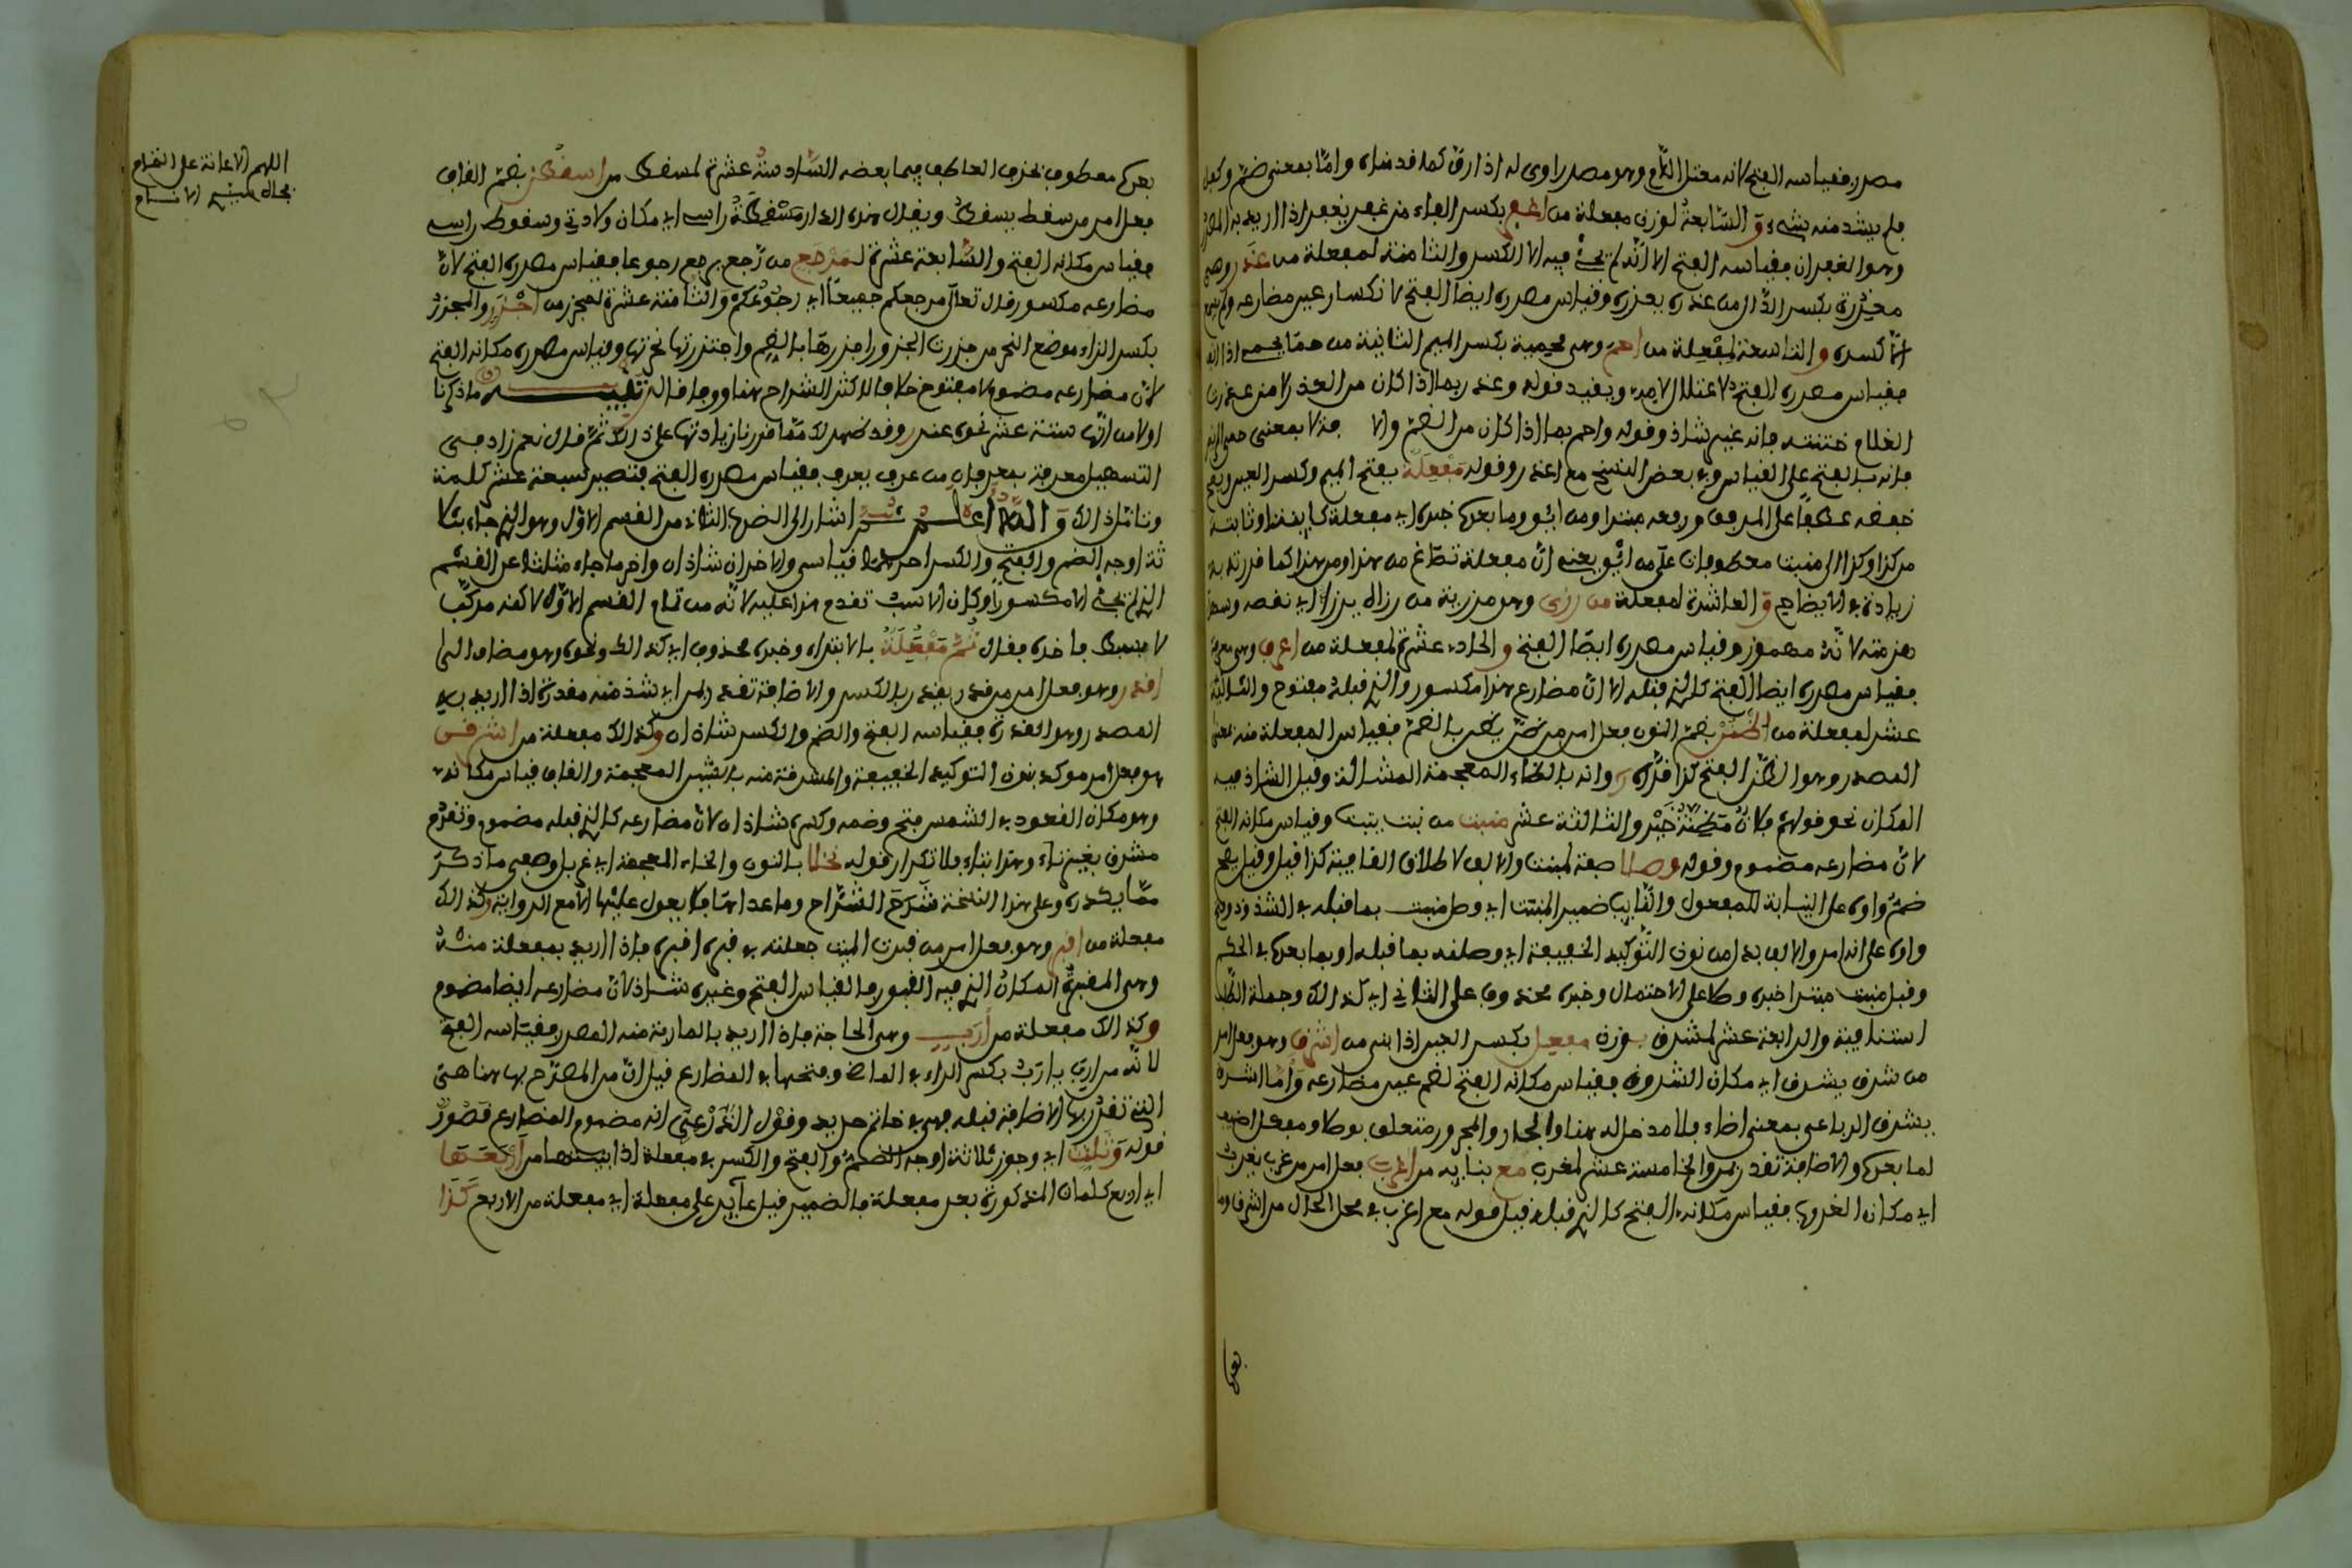 مصدر فقياسه الفتح لانه معتل اللام وهو مصدر اوى له اذا رق كما قدمناه واما بمعنى ضم وكفل
فلم يشذ منه شيء و السابعة لوزن مفعلة من اغفر بكسر الفاء من غفر يغفر اذا اريد به المصدر
وهو الغفران فقياسه الفتح الا انه لم يجئ فيه الا الكسر والثامنة لمفعلة من عذر وهي
معذرة بكسر الذال من عذره يعذره وقياس مصدره ايضا الفتح لانكسار عين مضارعه ولم يسمع
الا كسره و التاسعة لمفعلة من احم وهي محمية بكسر الميم الثانية من حما يحمي اذا
فقياس مصدره الفتح لاعتلال لامه ويفيد قوله وعذر بما اذا كان من العذر لا من عذرت
الغلام ختنته فانه غير شاذ وقوله واحم بما اذا كان من
فانه بالفتح على القياس وفي بعض النسخ مع اعذر وقوله مفعلة بفتح الميم وكسر العين
خفضه عطفا على المرفق ورفعه مبتدا ومن ائو وما بعده خبره اي مفعلة كاينة او ثابتة
من كذا وكذا الى منبت معطوفات على من ائو يعني ان مفعلة تصاغ من هذا ومن هذا كما قررته به
زيادة في الايضاح و العاشرة لمفعلة من رزى وهو مرزية من رزاه يرزاه اي نقصه
همزته لانه مهموز وقياس مصدره ايضا الفتح و الحادي عشرة لمفعلة من اعرف وهي معرفة
فقياس مصدره ايضا الفتح كالذي قبله الا ان مضارع هذا مكسور والذي قبله مفتوح والثانية
عشر لمفعلة من اظنن بضم النون فعل امر من ظن يظن بالضم فقياس المفعلة منه بمعنى
المصدر وهو الظن الفتح كذا قرره وانه بالظاء المعجمة المشالة وقيل الشاذ فيه
المكان نحو قولهم فلان مظنة خير والثالثة عشر منبت من نبت ينبت وقياس مكانه الفتح
لان مضارعه مضموم وقوله وصلا صفة لمنبت والالف لاطلاق القافية كذا قيل وقيل
ضم واوه على النيابة للمفعول والنايب ضمير المنبت اي وصل منبت بما قبله في الشذوذ
واوه على انه امر والالف بدل من نون التوكيد الخفيفة اي وصلنه بما قبله او بما بعده في الحكم
وقيل منبت مبتدا خبره وصلا على الاحتمال وخبره محذوف على الثاني اي كذلك وجملة الطلب
استئنافية والرابعة عشر لمشرق بوزن مفعل بكسر العين اذا بني من اشرق وهو فعل امر
من شرق يشرق اي مكان الشروق فقياس مكانه الفتح لضم عين مضارعه واما اشرق
يشرق الرباعي بمعنى اضاء فلا مدخل له هنا والجار والمجرور متعلق بوصلا ومفعل اضيف
لما بعده والاضافة تقدر بمن والخامسة عشر لمغرب مع بنايه من اغرب فعل امر من غرب يغرب
اي مكان الغروب فقياس مكانه الفتح كالذي قبله قيل قوله مع اغرب في محل الحال من اشرق وما
بعده
بعده معطوف بحذف العاطف فيما بعضه السادسة عشرة لمسقط من اسقط بضم القاف
فعل امر من سقط يسقط ويقال هذه الدار مسقط راسي اي مكان ولادتي وسقوط راسي
فقياس مكانه الفتح والسابعة عشرة لمرجع من رجع يرجع رجوعا فقياس مصدره الفتح لان
مضارعه مكسور قال تعالى مرجعكم جميعا اي رجوعكم والثامنة عشرة لمجزر من اجزر والمجزر
بكسر الزاء موضع النحر من جزرت الجزور اجزرها بالضم واجتزرتها نحرتها وقياس مصدره مكانه الفتح
لان مضارعه مضموم لا مفتوح خلافا لاكثر الشراح هنا ووفاقا له تنبيه ما ذكرنا
اولا من انها ستة عشر نحوى عذر وقد ظهر لك مما قررنا زيادتها على ذلك ثم قال نعم زاد في
التسهيل معرفة بمعرفان من عرف يعرف فقياس مصدره الفتح فتصير سبعة عشر كلمة
وتامل ذلك والله اعلم ثم اشار الى الضرب الثاني من القسم الاول وهو الذي جاء بثلا
ثة اوجه الضم والفتح والكسر احدهما قياسي والاخران شاذان واخر ما جاء مثلثا عن القسم
الذي لم يجئ الا مكسورا وكان الانسب تقدم هذا عليه لانه من تمام القسم الاول لاكنه مركب
لا بسيط فاخره فقال ثم مفعلة بالابتداء وخبره محذوف اي كذلك ونحوه وهو مضاف الى
اقدر وهو فعل امر من قدر يقدر بالكسر والاضافة تقدر بمن اي شذ منه مقدرة اذا اريد به
المصدر وهو القدرة فقياسه الفتح والضم والكسر شاذان وكذلك مفعلة من اشرقن
هو فعل امر موكد بنون التوكيد الخفيفة والمشرقة منه بالشين المعجمة والقاف قياس مكانه
وهو مكان القعود في الشمس فتح وضمه وكسره شاذان لان مضارعه كالذي قبله مضموم وتقدم
مشرق بغير تاء وهذا بتاء فلا تكرار قوله نخلا بالنون والخاء المعجمة اي غربل وصفي ما ذكر
مما يكدره وعلى هذا النسخة شرح الشراح وما عداها فلا يعول عليها الا مع الرواية وكذلك
مفعلة من اقبر وهو فعل امر من قبرت الميت جعلته في قبره اقبره فاذا اريد بمفعلة منه
وهي المقبرة المكان الذي فيه القبور فالقياس الفتح وغيره شاذ لان مضارعه ايضا مضموم
وكذلك مفعلة من أرب وهي الحاجة فاذا اريد بالماربة منه المصدر فقياسه الفتح
لانه من ارب يارب بكسر الراء في الماضي وفتحها في المضارع قيل ان من المصرح بها هنا هي
التي تقدر بها الاضافة قبله فهي في خاتم حديد وقول الدرعي انه مضموم المضارع قصور
قوله وثلث اي وجوز ثلاثة اوجه الضم والفتح والكسر في مفعلة اذا بنيتها من اربعتها
اي اربع كلمات المذكورة بعد مفعلة فالضمير قيل عايد على مفعلة اي مفعلة من الاربع كذا